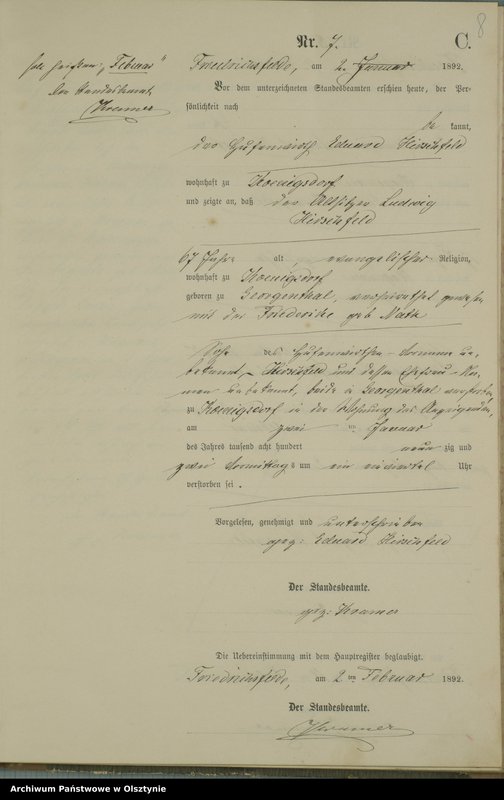 8
Nr. 7.
C.
soll heißen: „Februar“
Der Standesbeamte
Kramer
Friedrichsfelde, am 2. Januar 1892.
Vor dem unterzeichneten Standesbeamten erschien heute, der Per-
sönlichkeit nach
be kannt,
der Hufenwirth Eduard Hirschfeld
wohnhaft zu Koenigsdorf
und zeigte an, daß der Altsitzer Ludwig
Hirschfeld
67 Jahre alt, evangelischer Religion,
wohnhaft zu Koenigsdorf
geboren zu Georgenthal, verheirathet gewesen
mit der Friederike geb
Sohn des Hufenwirthen Vorname un-
bekannt, Hirschfeld und dessen Ehefrau Na-
men unbekannt, beide in Georgenthal verstorben
zu Koenigsdorf in der Wohnung des Anzeigenden,
am zwei ten Januar
des Jahres tausend acht hundert neun zig und
zwei Vormittags um ein Uhr
verstorben sei.
Vorgelesen, genehmigt und unterschrieben
gez: Eduard Hirschfeld
Der Standesbeamte.
gez: Kramer
Die Uebereinstimmung mit dem Hauptregister beglaubigt.
Friedrichsfelde, am 2 ten Februar 1892.
Der Standesbeamte.
Kramer
Archiwum Państwowe w Olsztynie